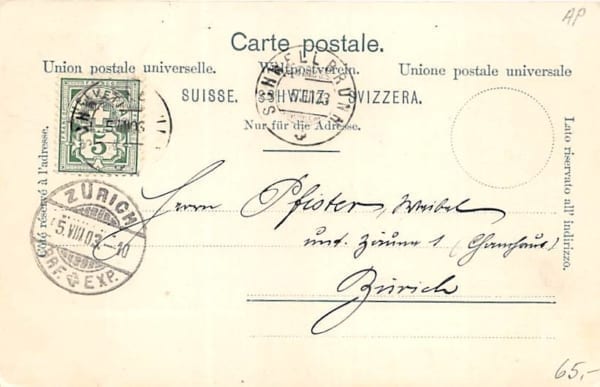 AP
Carte postale.
Union postale universelle. Weltpostverein. Unione postale universale
SUISSE. SCHWEIZ. SVIZZERA.
Nur für die Adresse.
Côté réservé à l'adresse.
Lato riservato all' indirizzo.
HELVETIA
5
SCHWELLBRUNN
ZÜRICH
5.VIII.03.-10
BRF. EXP.
Herrn Pfister, Weibel
unt. Zäune 1 (Chamhaus)
Zürich
65,-